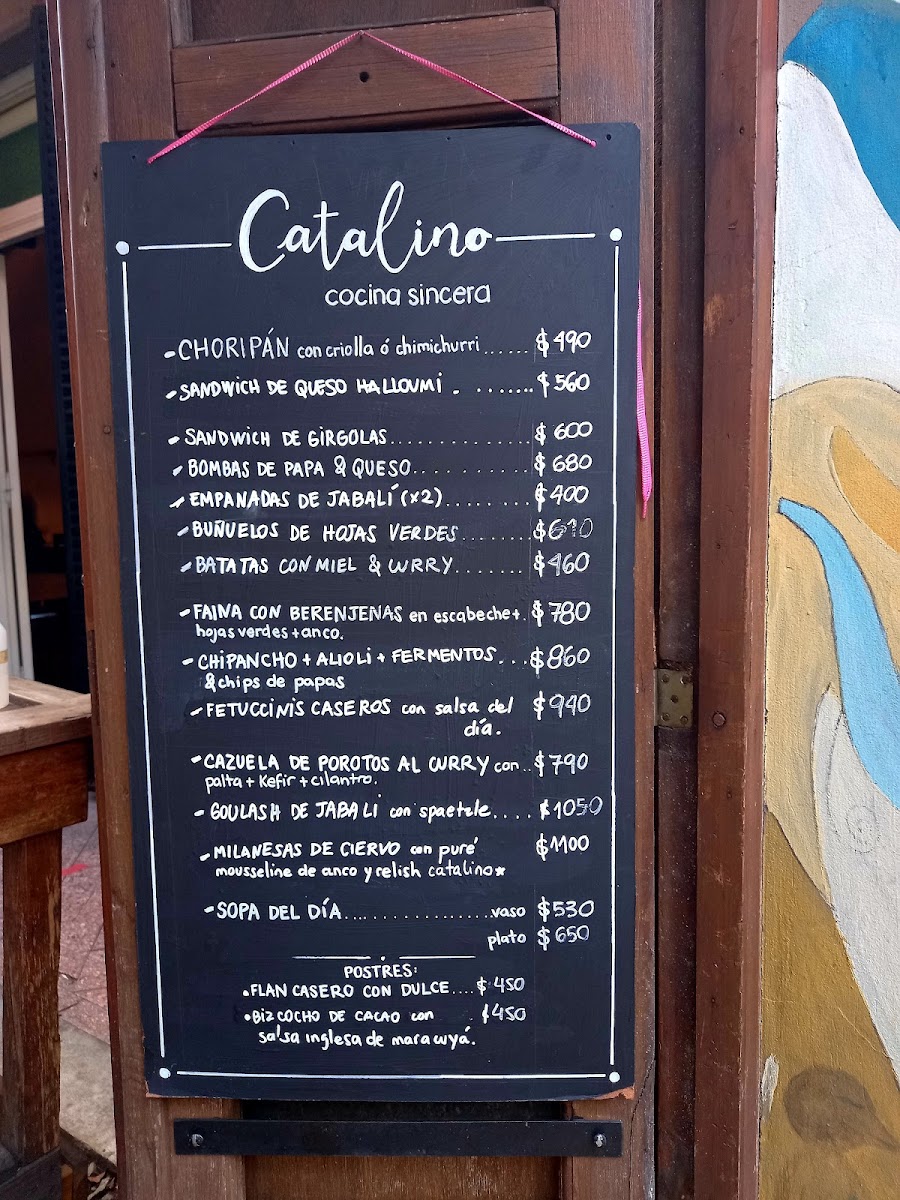 Catalino
cocina sincera
- CHORIPÁN con criolla ó chimichurri...... $490
- SANDWICH DE QUESO HALLOUMI . ....... $560
- SANDWICH DE GIRGOLAS............. $600
- BOMBAS DE PAPA & QUESO........... $680
- EMPANADAS DE JABALÍ (x2)........ $400
- BUÑUELOS DE HOJAS VERDES ....... $610
- BATATAS CON MIEL & CURRY....... $460
- FAINA CON BERENJENAS en escabeche+. $780
hojas verdes + anco.
- CHIPANCHO + ALIOLI + FERMENTOS... $860
& chips de papas
- FETUCCINIS CASEROS con salsa del $940
día.
- CAZUELA DE POROTOS AL CURRY con.. $790
palta + Kefir + cilantro.
- GOULASH DE JABALI con spaetzle.... $1050
- MILANESAS DE CIERVO con puré $1100
mousseline de anco y relish catalino*
- SOPA DEL DÍA.................vaso $530
plato $650
POSTRES:
• FLAN CASERO CON DULCE.... $450
• BIZCOCHO DE CACAO con . $450
salsa inglesa de maracuyá.